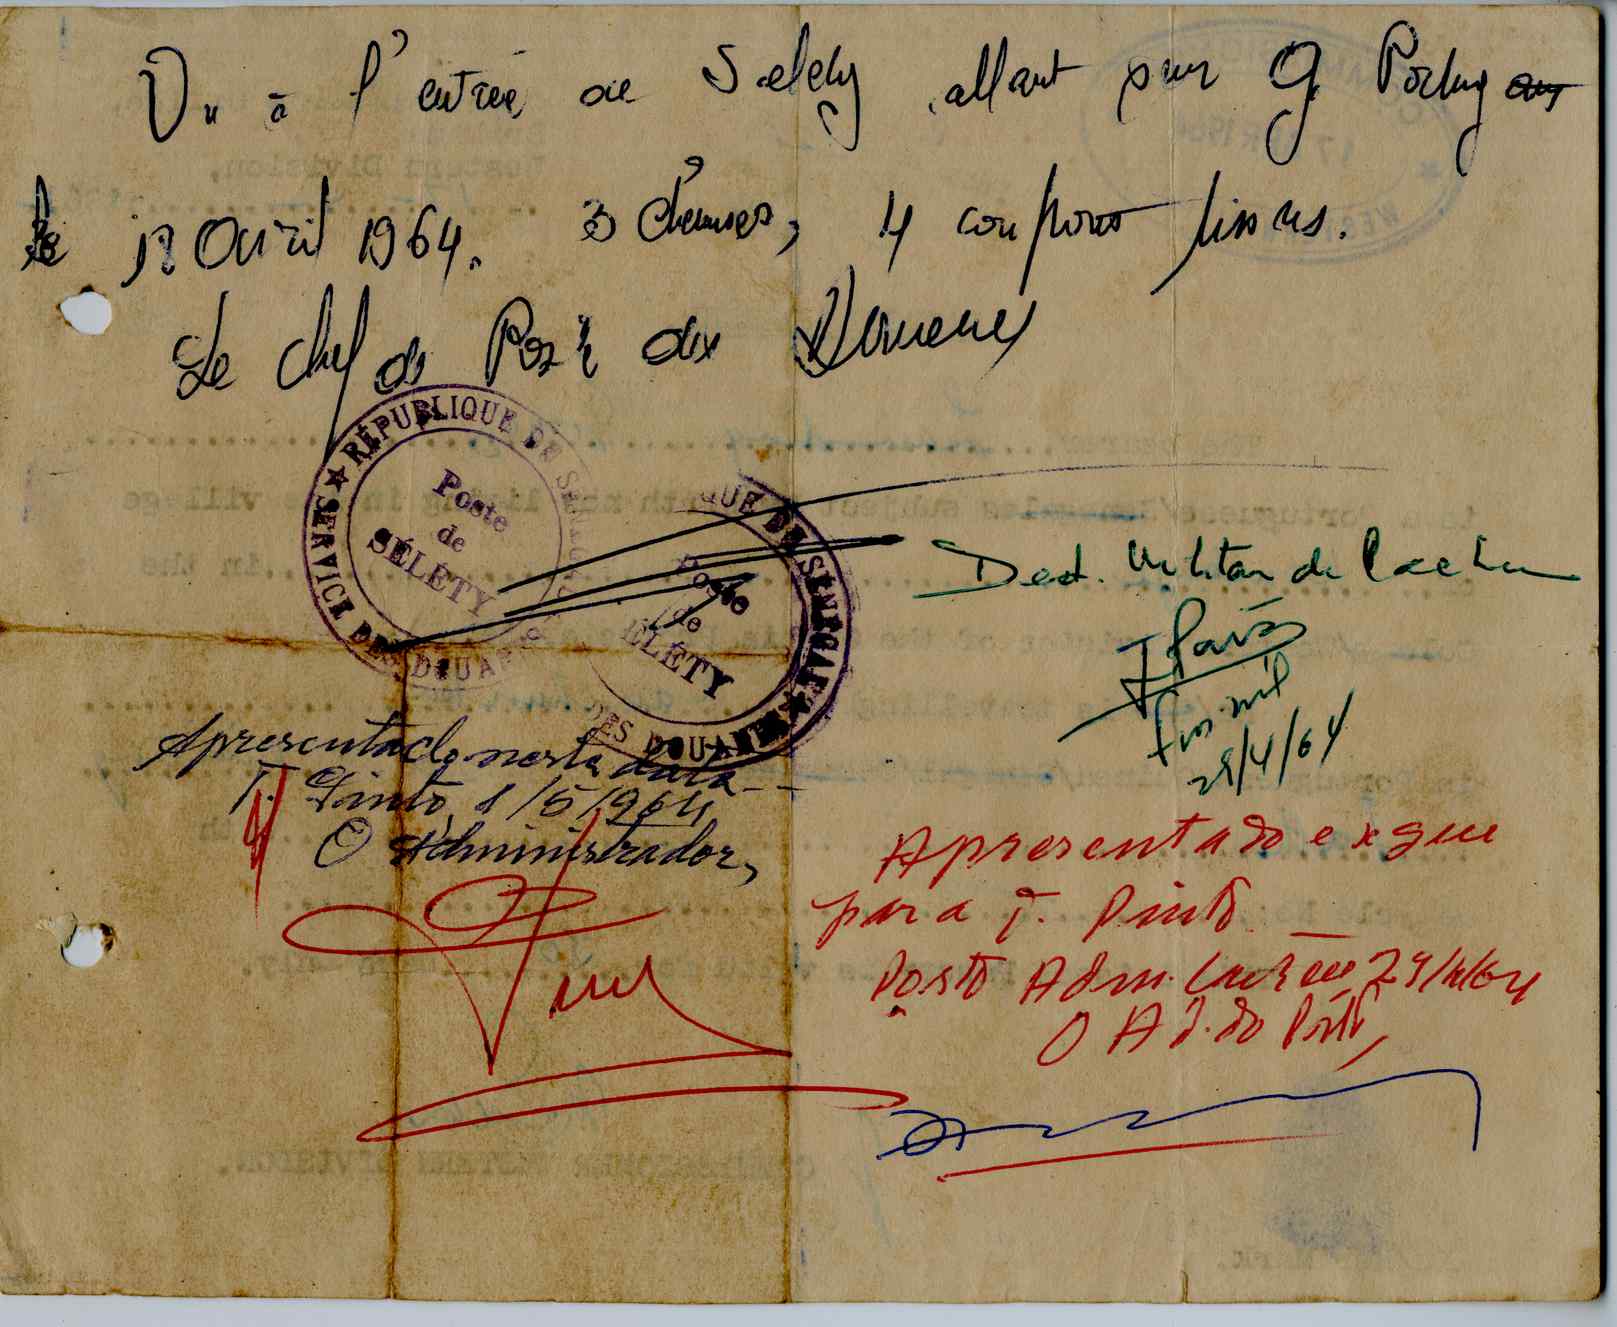 Vu à l'entrée de Selety allant sur G. Portug
le 18 Avril 1964. 3 chemises, 4 coupons tissus.
Le chef de Poste des Douanes
★ RÉPUBLIQUE DU SÉNÉGAL ★ SERVICE DES DOUANES
Poste
de
SÉLÉTY
RÉPUBLIQUE DU SÉNÉGAL ★ SERVICE DES DOUANES
Poste
de
SÉLÉTY
Dest. Militar de Cacheu
29/4/64
Apresentado nesta data
T. Pinto, 1/5/964
O Administrador,
Apresentado e segue
para T. Pinto
Posto Adm. Cacheu 29/4/64
O Ad. do Posto,